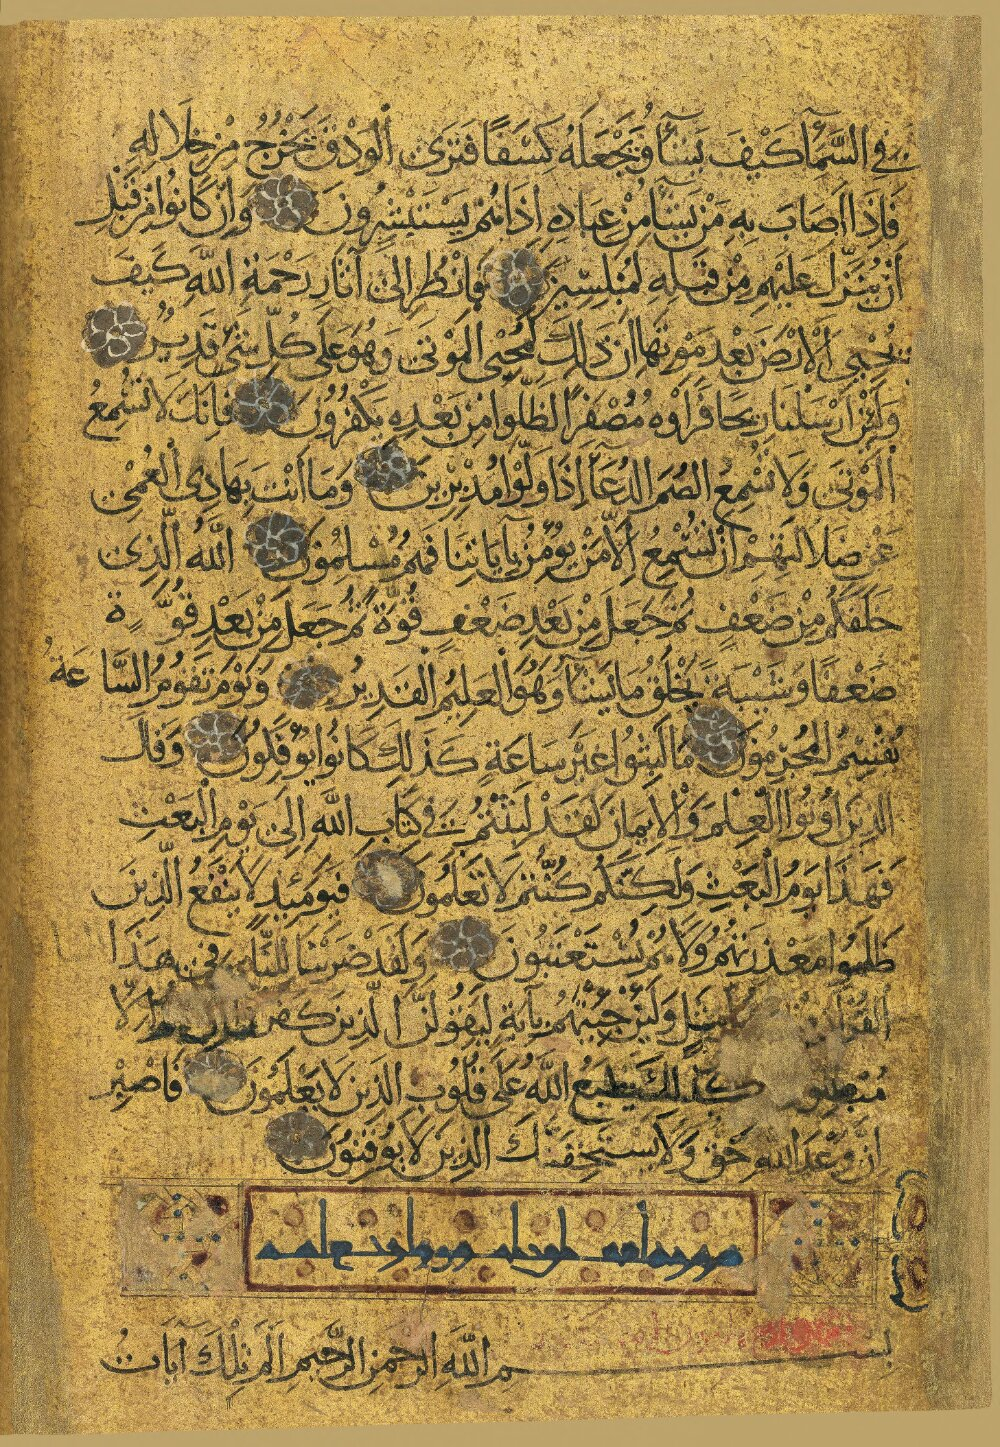 في السَّمَآ كَيْفَ يَشَآ وَيَجْعَلُهُ كِسَفًا فَتَرَى الْوَدْقَ يَخْرُجُ مِنْ خِلَالِهِ
فَإِذَا أَصَابَ بِهِ مَنْ يَشَآ مِنْ عِبَادِهِ إِذَا هُمْ يَسْتَبْشِرُونَ وَإِنْ كَانُوا مِنْ قَبْلِ
أَنْ يُنَزَّلَ عَلَيْهِمْ مِنْ قَبْلِهِ لَمُبْلِسِينَ فَانْظُرْ إِلَى آثَارِ رَحْمَةِ اللَّهِ كَيْفَ
يُحْيِي الْأَرْضَ بَعْدَ مَوْتِهَا إِنَّ ذَلِكَ لَمُحْيِي الْمَوْتَى وَهُوَ عَلَى كُلِّ شَيْءٍ قَدِيرٌ
وَلَئِنْ أَرْسَلْنَا رِيحًا فَرَأَوْهُ مُصْفَرًّا لَظَلُّوا مِنْ بَعْدِهِ يَكْفُرُونَ فَإِنَّكَ لَا تُسْمِعُ
الْمَوْتَى وَلَا تُسْمِعُ الصُّمَّ الدُّعَآ إِذَا وَلَّوْا مُدْبِرِينَ وَمَا أَنْتَ بِهَادِي الْعُمْيِ
عَنْ ضَلَالَتِهِمْ إِنْ تُسْمِعُ إِلَّا مَنْ يُؤْمِنُ بِآيَاتِنَا فَهُمْ مُسْلِمُونَ اللَّهُ الَّذِي
خَلَقَكُمْ مِنْ ضَعْفٍ ثُمَّ جَعَلَ مِنْ بَعْدِ ضَعْفٍ قُوَّةً ثُمَّ جَعَلَ مِنْ بَعْدِ قُوَّةٍ
ضَعْفًا وَشَيْبَةً يَخْلُقُ مَا يَشَآ وَهُوَ الْعَلِيمُ الْقَدِيرُ وَيَوْمَ تَقُومُ السَّاعَةُ
يُقْسِمُ الْمُجْرِمُونَ مَا لَبِثُوا غَيْرَ سَاعَةٍ كَذَلِكَ كَانُوا يُؤْفَكُونَ وَقَالَ
الَّذِينَ أُوتُوا الْعِلْمَ وَالْإِيمَانَ لَقَدْ لَبِثْتُمْ فِي كِتَابِ اللَّهِ إِلَى يَوْمِ الْبَعْثِ
فَهَذَا يَوْمُ الْبَعْثِ وَلَكِنَّكُمْ كُنْتُمْ لَا تَعْلَمُونَ فَيَوْمَئِذٍ لَا يَنْفَعُ الَّذِينَ
ظَلَمُوا مَعْذِرَتُهُمْ وَلَا هُمْ يُسْتَعْتَبُونَ وَلَقَدْ ضَرَبْنَا لِلنَّاسِ فِي هَذَا
الْقُرْآنِ مَثَلٍ وَلَئِنْ جِئْتَهُمْ بِآيَةٍ لَيَقُولَنَّ الَّذِينَ كَفَرُوا إِلَّا
مُبْطِلُونَ كَذَلِكَ يَطْبَعُ اللَّهُ عَلَى قُلُوبِ الَّذِينَ لَا يَعْلَمُونَ فَاصْبِرْ
إِنَّ وَعْدَ اللَّهِ حَقٌّ وَلَا يَسْتَخِفَّنَّكَ الَّذِينَ لَا يُوقِنُونَ
بِسْمِ اللَّهِ الرَّحْمَنِ الرَّحِيمِ الم تِلْكَ آيَاتُ